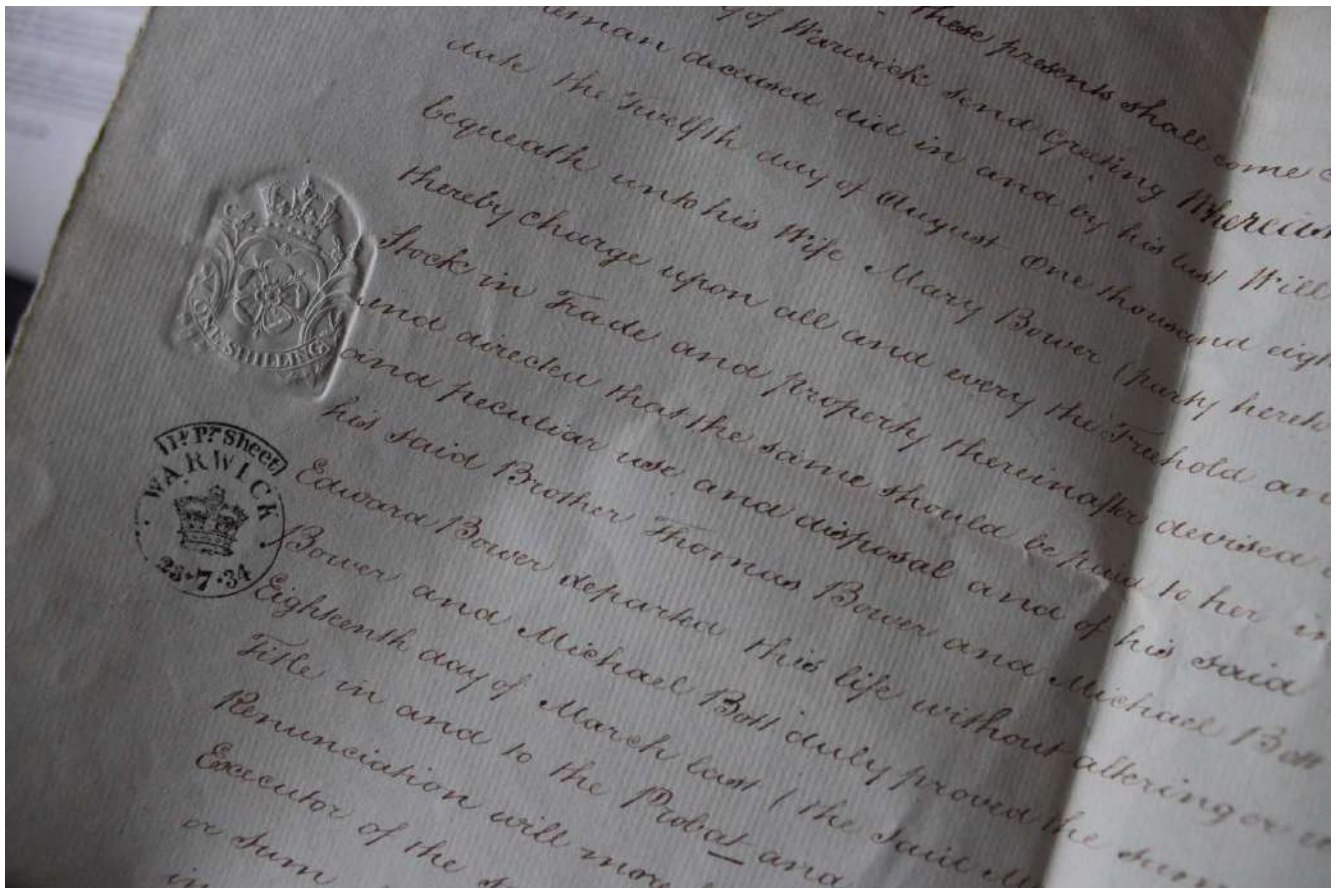 these presents shall come
of Warwick send Greeting Whereas
deceased did in and by his last Will
date the Twelfth day of August One thousand eigh
bequeath unto his Wife Mary Bower (party hereto
thereby charge upon all and every the Freehold an
Stock in Trade and property thereinafter devised
and directed that the same should be paid to her in
and peculiar use and disposal and of his said
his said Brother Thomas Bower and Michael Bott
Edward Bower departed this life without altering or
Bower and Michael Bott duly proved the same
Eighteenth day of March last (the said
Title in and to the Probat and
Renunciation will more
Executor of the
or sum
in
ONE SHILLING
11d Pr Sheet
WARWICK
23·7·34